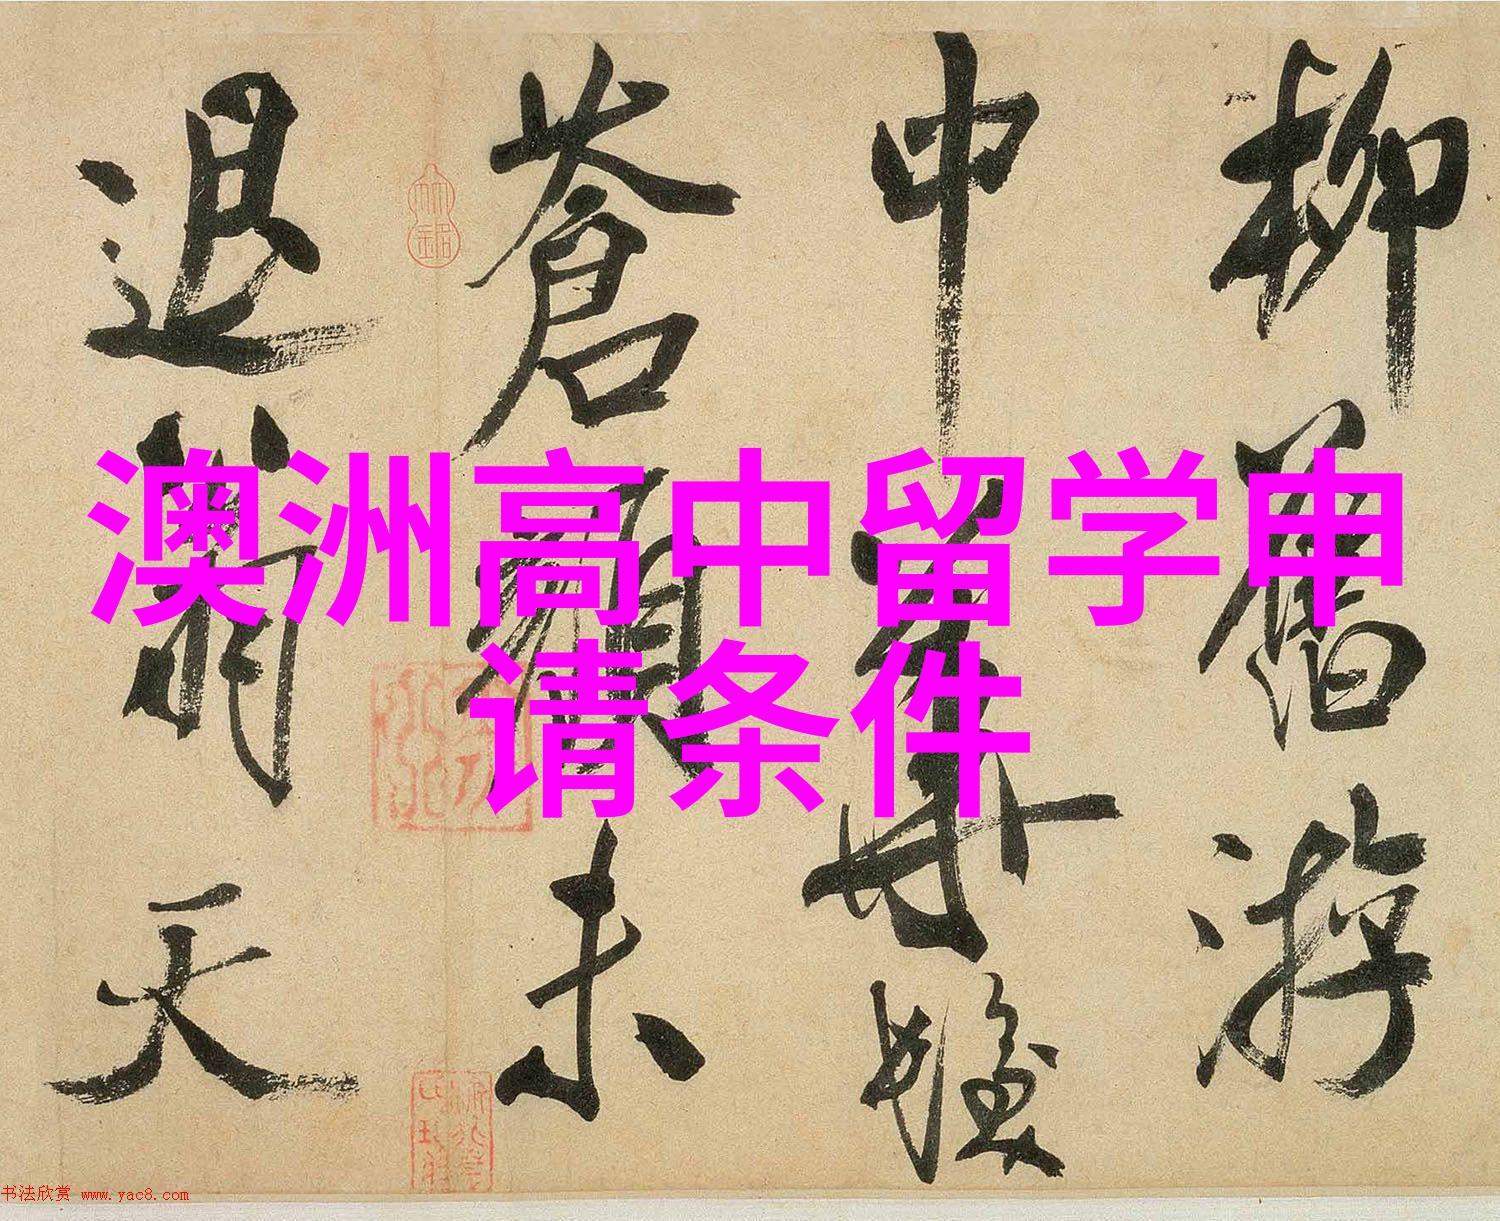 澳洲高中留学申
请条件
柳舊游
中華髮
蒼顏未
退翁天
书法欣赏 www.yac8.com